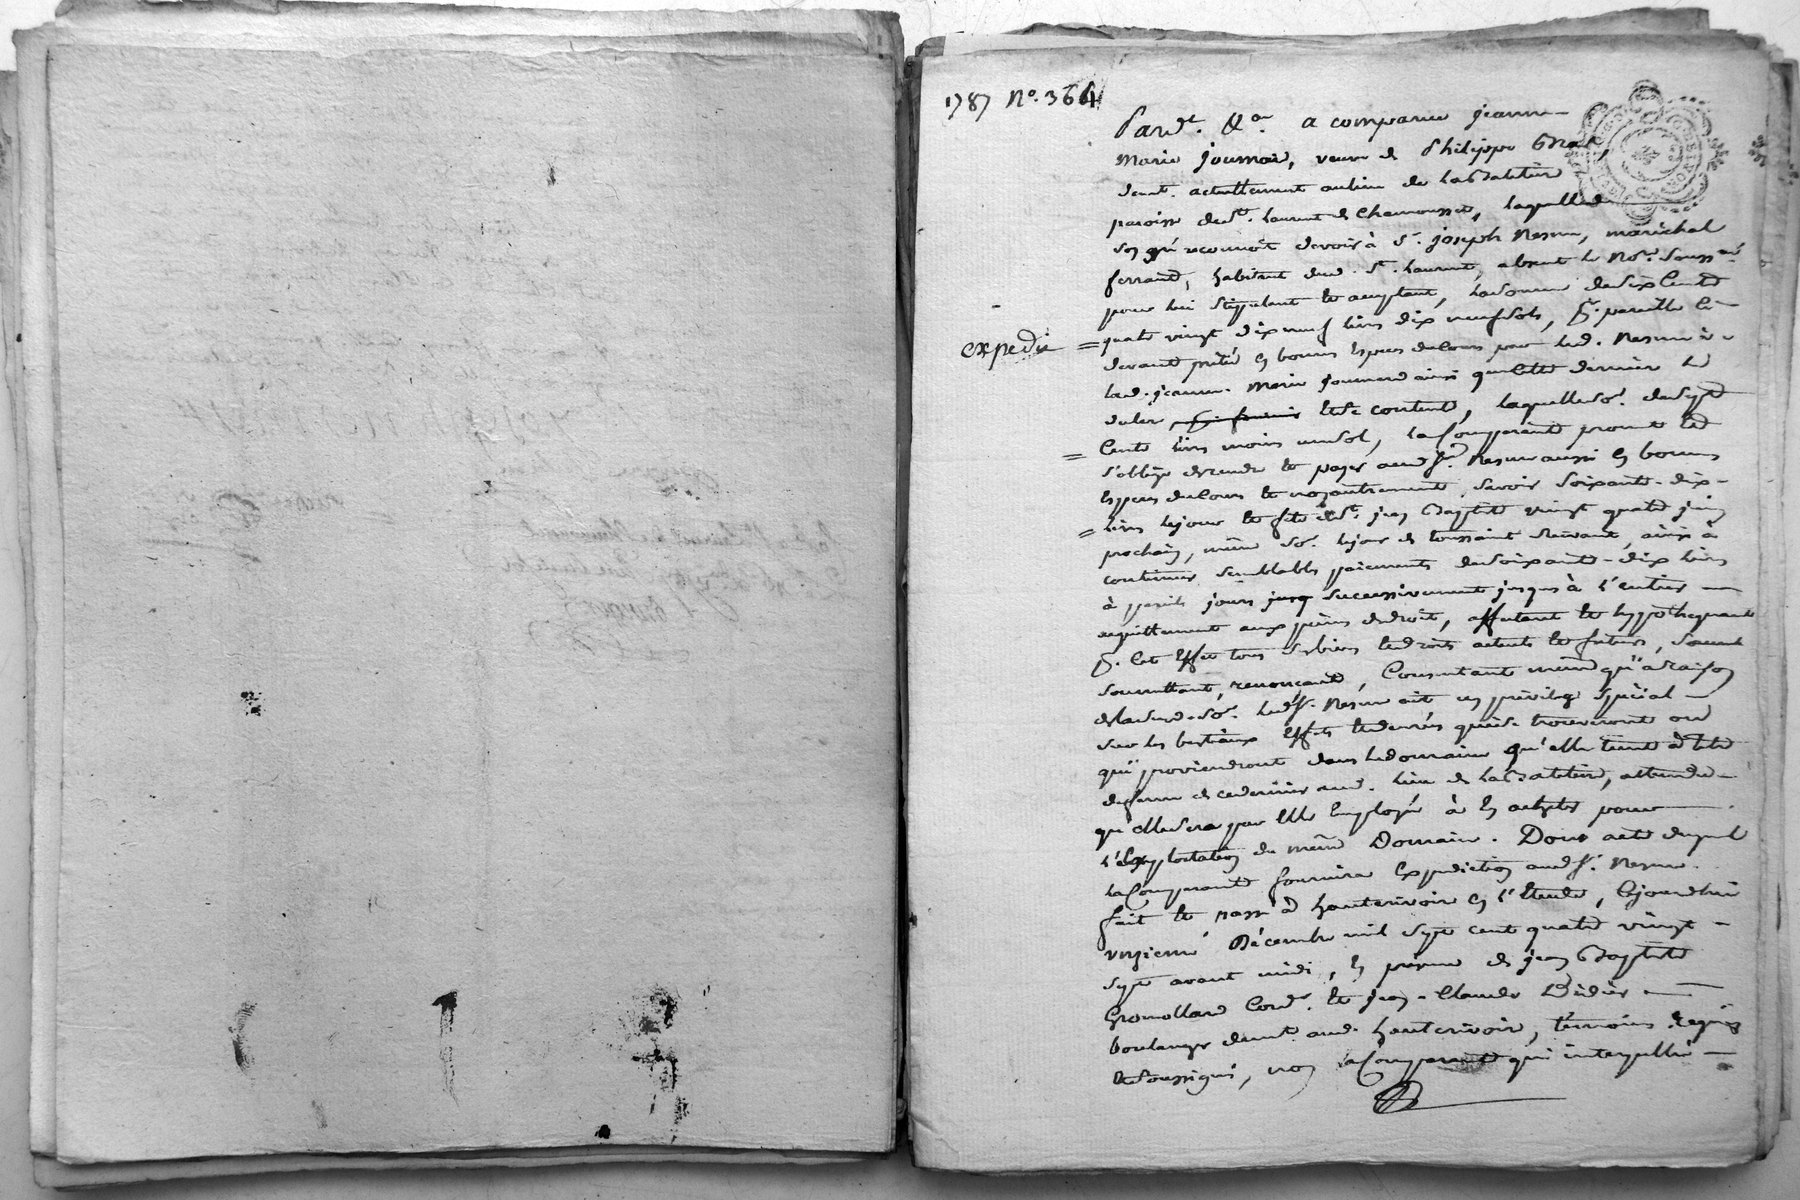 1787 N°. 364
Pard.t &a. a comparue jeanne
Marie joumard, veuve de Philippe
demt. actuellement au lieu de la Batitire
paroisse de St. Laurent de Chamousset, laquelle
de gré reconnoit devoir à Sr. joseph Nesme, maréchal
ferrand, habitant dud. St. Laurent, absent le No.re Soussné
pour lui stippulant et acceptant, la somme de Six Cents
quatre vingt dix neuf livres dix neuf sols, pr. pareille ci
expedié = devant prêté en bonnes Especes de Cours par led. Nesme à
lad. jeanne Marie joumard ainsi que Cette derniere le
declare et Se contente, laquelle so.e de Sept
= Cents livres moins un sol, la Comparante promet et
s'oblige de rendre et payer aud. Sr. Nesme aussi en bonnes
Especes de Cours et non autrement, Savoir Soixante-dix
= livres le jour et fête de St. jean Baptiste vingt quatre juin
prochain, même so.e le jour de toussaint Suivant, ainsi à
continuer Semblables paiements de Soixante-dix livres
à pareils jours jusq Successivement jusques à l'entier
acquittement aux peines de droit, affectant et hyppothequant
pr. Cet Effet tous ses biens et droits actuels et futurs, Soumt
soumettant, renonçant, Consentant même qu'à raison
de la susd. so.e led. Sr. Nesme ait un privilege Spécial
sur les bestiaux Effets et denrées qui se trouveront ou
qui proviendront dans le domaine qu'elle tient à titre
de ferme de ce dernier aud. lieu de la Batitire, attendu
qu'elle sera par Elle Employée à En achepter pour
l'Exploitation du même Domaine. Dont acte duquel
la Comparante fournira Expedition aud. Sr. Nesme.
fait et passé à hauterivoire en l'Etude, Cejourdhui
onzieme Décembre mil Sept cent quatre vingt
Sept avant midi, En présence de jean Baptiste
Gromollard Cord.r et jean-Claude Bidier
boulanger demt. aud. hauterivoire, témoins requis
et Soussignés, non la Comparante qui interpellée